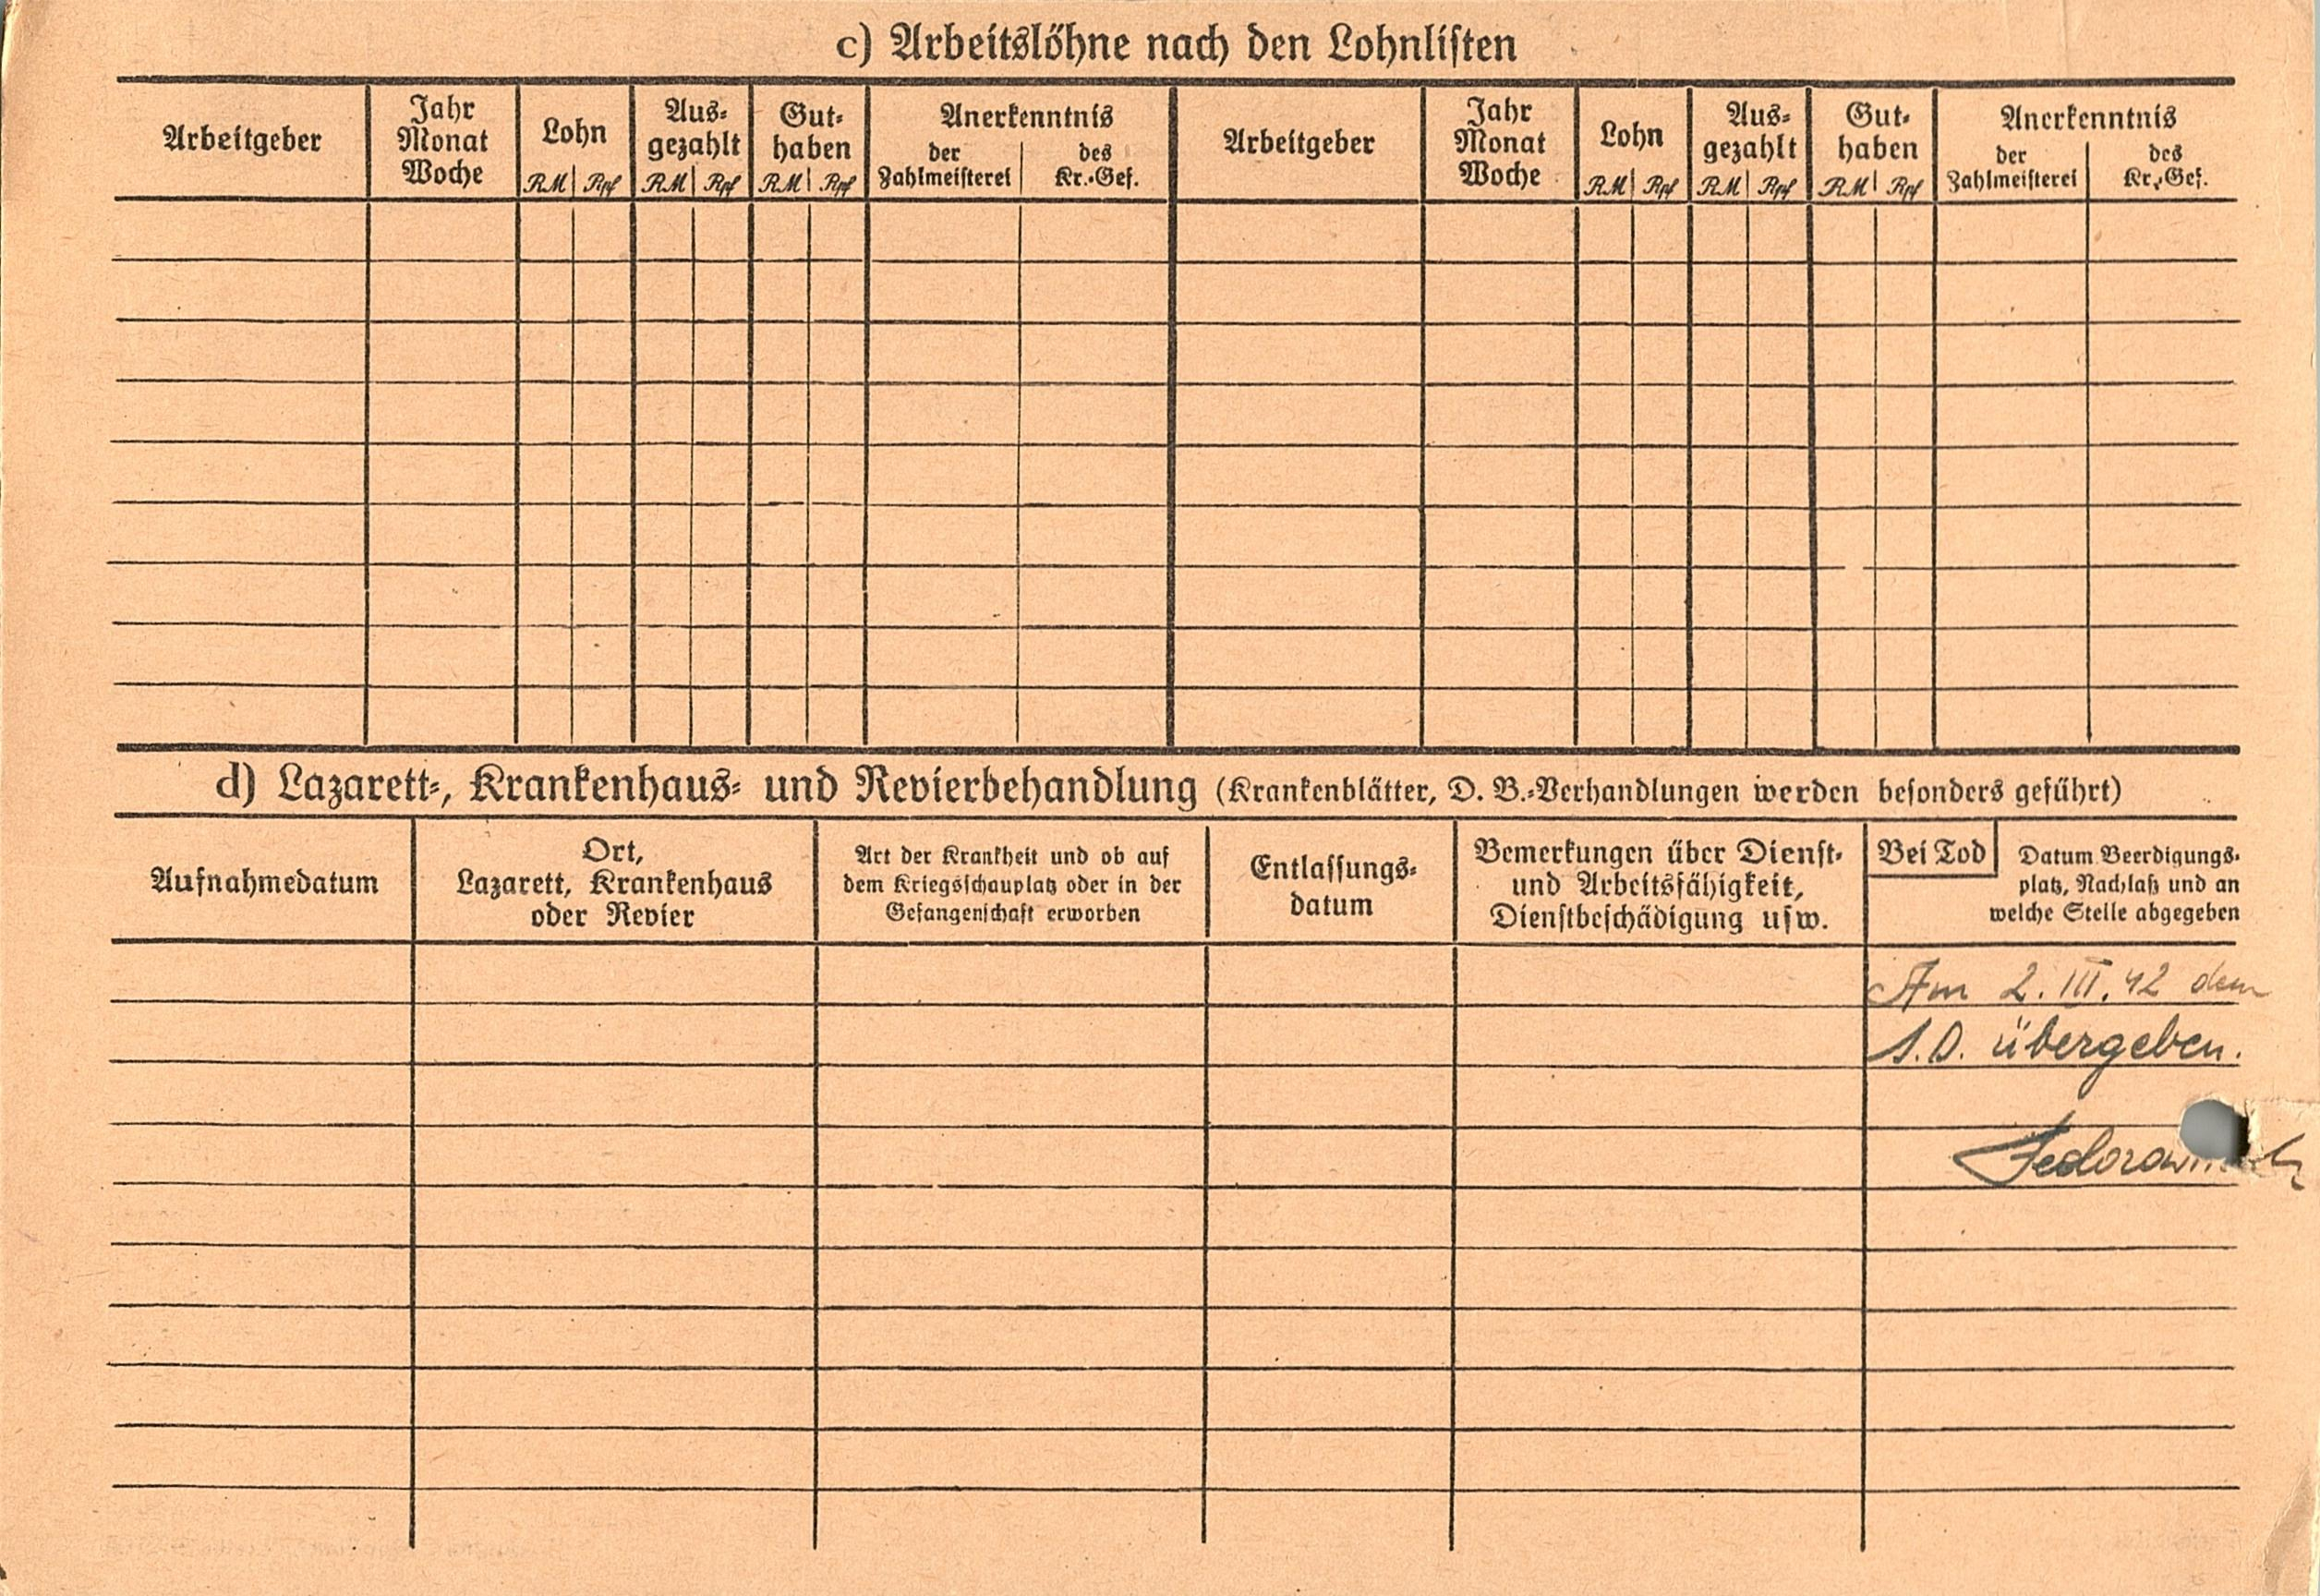 c) Arbeitslöhne nach den Lohnlisten
Arbeitgeber
Jahr
Monat
Woche
Lohn
RM Rpf
Aus-
gezahlt
RM Rpf
Gut-
haben
RM Rpf
Anerkenntnis
der
Zahlmeisterei
des
Kr.-Gef.
Arbeitgeber
Jahr
Monat
Woche
Lohn
RM Rpf
Aus-
gezahlt
RM Rpf
Gut-
haben
RM Rpf
Anerkenntnis
der
Zahlmeisterei
des
Kr.-Gef.
d) Lazarett-, Krankenhaus- und Revierbehandlung (Krankenblätter, D. B.-Verhandlungen werden besonders geführt)
Aufnahmedatum
Ort,
Lazarett, Krankenhaus
oder Revier
Art der Krankheit und ob auf
dem Kriegsschauplatz oder in der
Gefangenschaft erworben
Entlassungs-
datum
Bemerkungen über Dienst-
und Arbeitsfähigkeit,
Dienstbeschädigung usw.
Bei Tod
Datum Beerdigungs-
platz, Nachlaß und an
welche Stelle abgegeben
Am 2. III. 42 dem
S.D. übergeben.